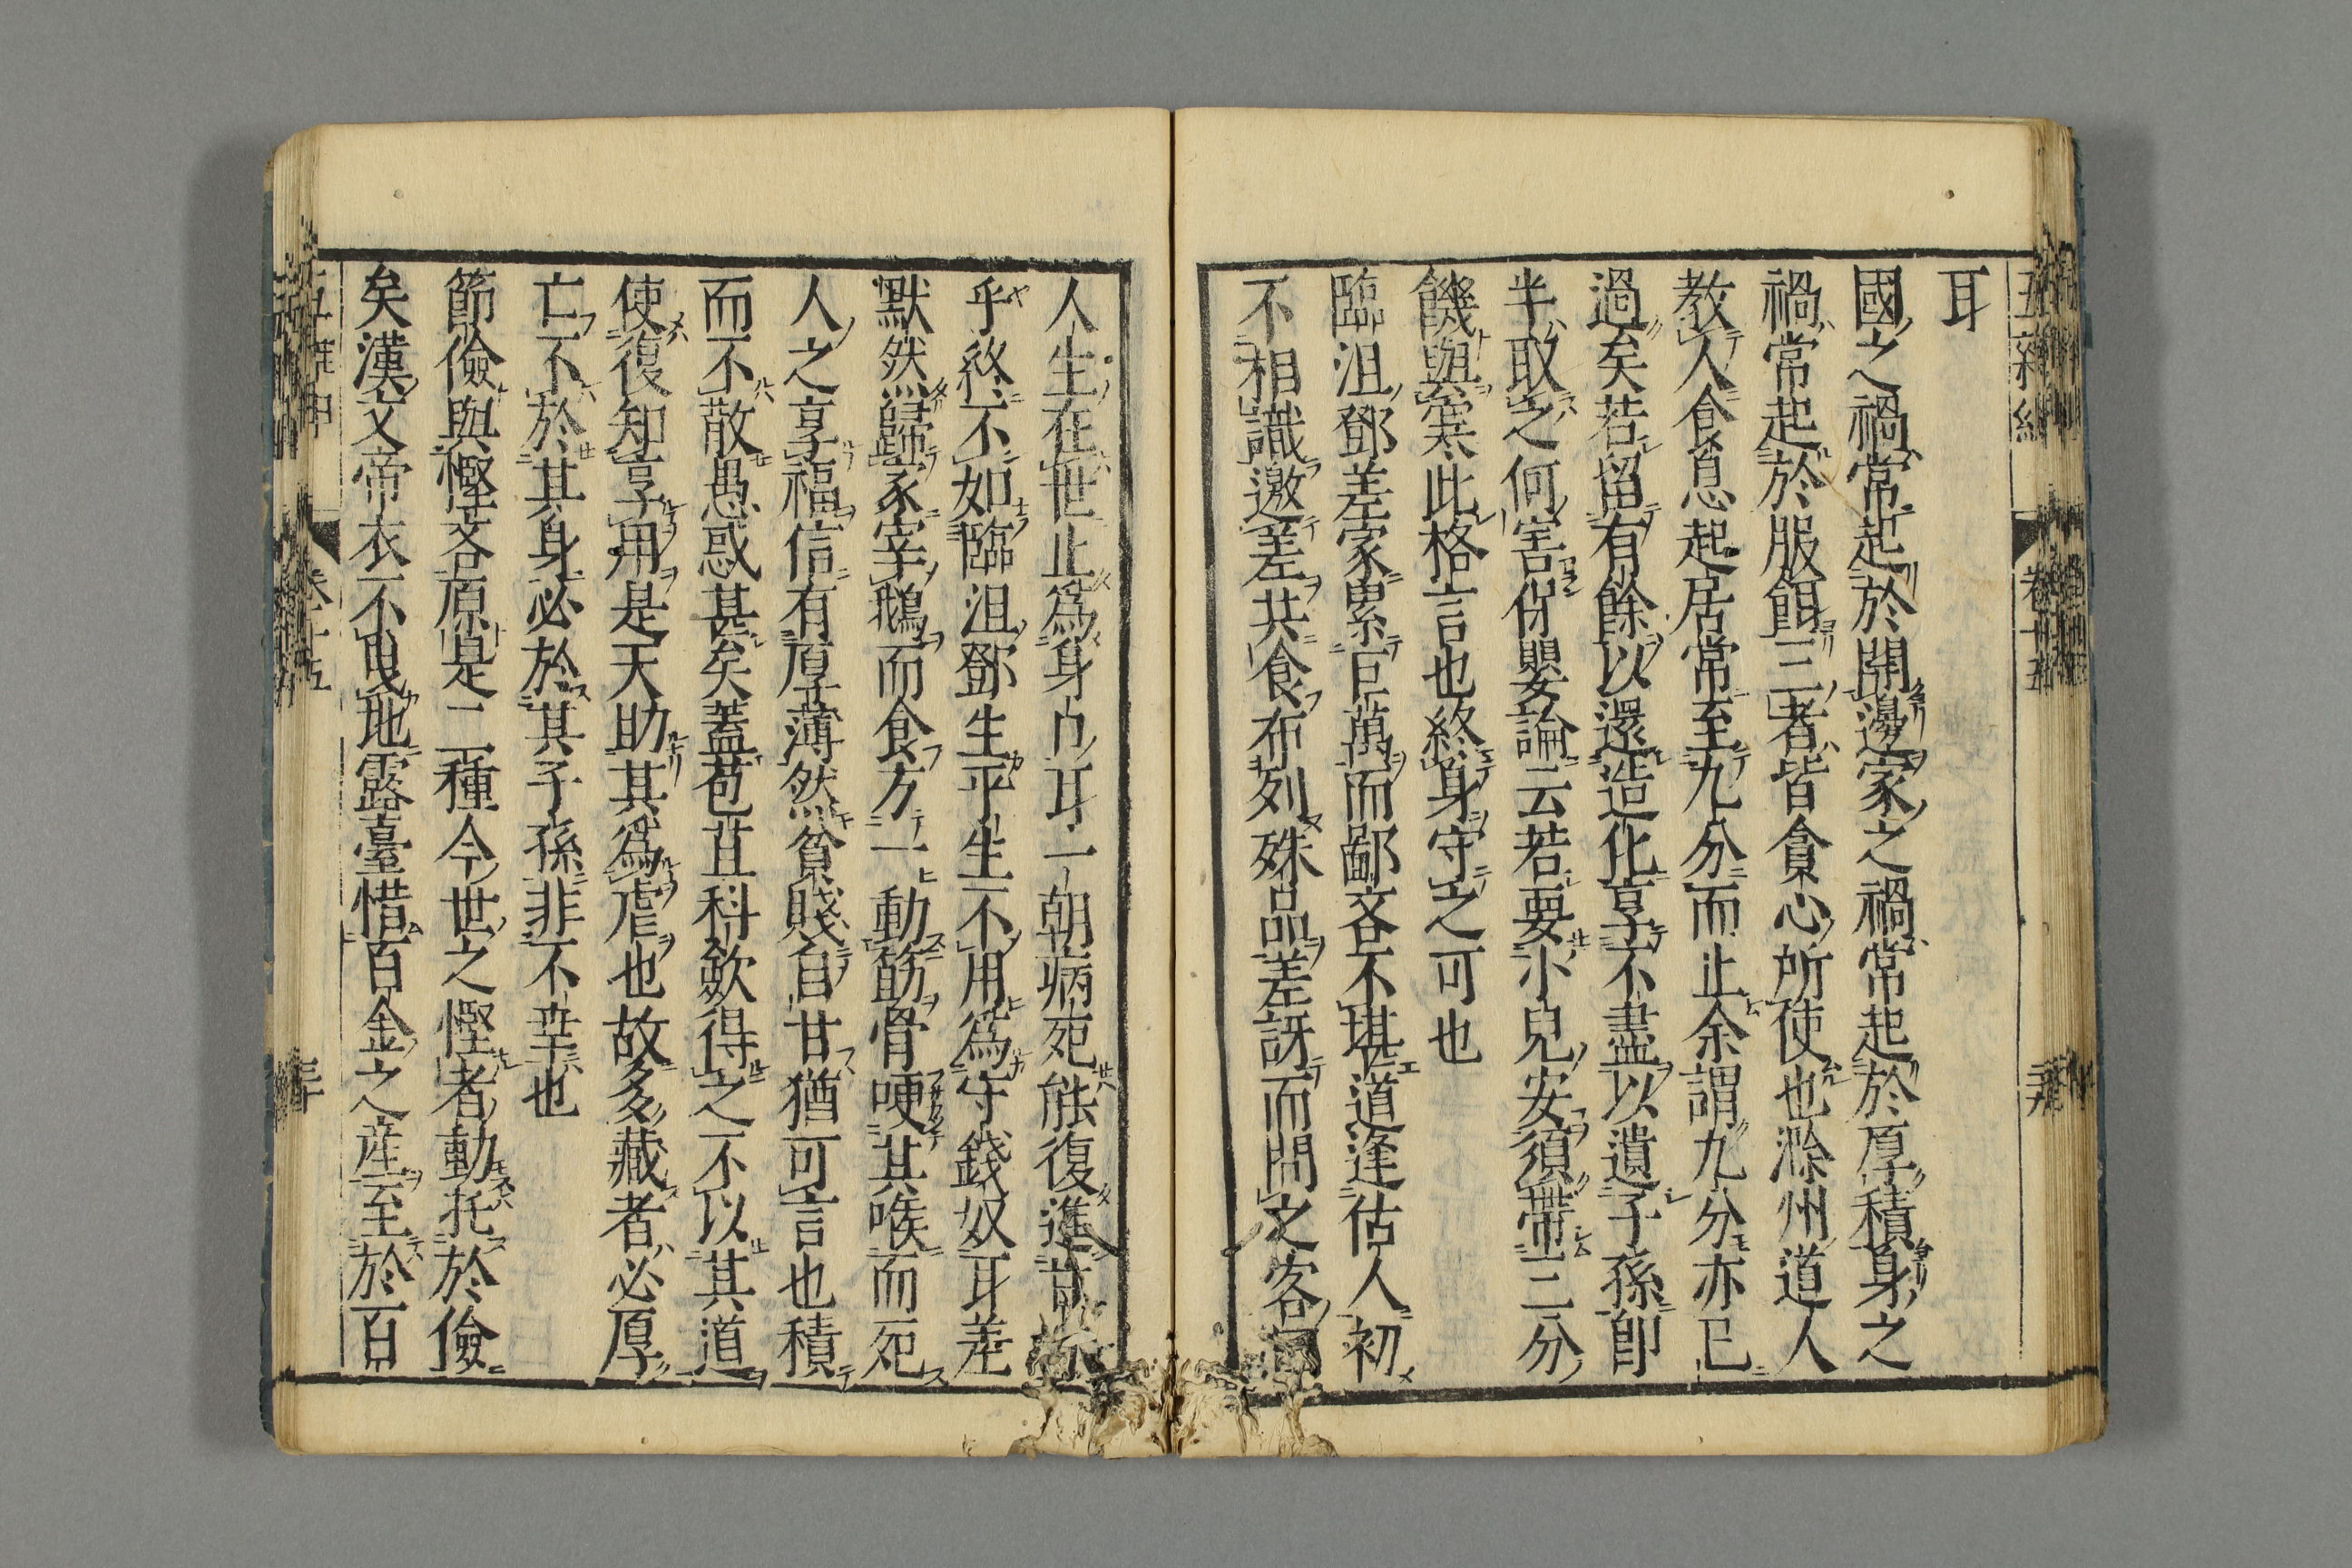 五雜組 卷十五
耳
國之禍常起於開邊家之禍常起於厚積身之
禍常起於服餌三者皆貪心所使也滁州道人
教人食息起居常至九分而止余謂九分亦已
過矣若留有餘以還造化享不盡以遺子孫卽
半取之何害保嬰論云若要小兒安須帶三分
饑與寒此格言也終身守之可也
臨沮鄧差家累巨萬而鄙吝不堪道逢估人初
不相識邀差共食布列殊品差訝而問之客
人生在世止爲身口耳一朝病死能復進甘
乎終不如臨沮鄧生平生不用爲守錢奴耳差
默然歸家宰鵝而食方一動筯骨哽其喉而死
人之享福信有厚薄然貧賤自甘猶可言也積
而不散愚惑甚矣蓋苞苴科歛得之不以其道
使復知享用是天助其爲虐也故多藏者必厚
亡不於其身必於其子孫非不幸也
節儉與慳吝原是二種今世之慳者動托於儉
矣漢文帝衣不曳地露臺惜百金之産至於百